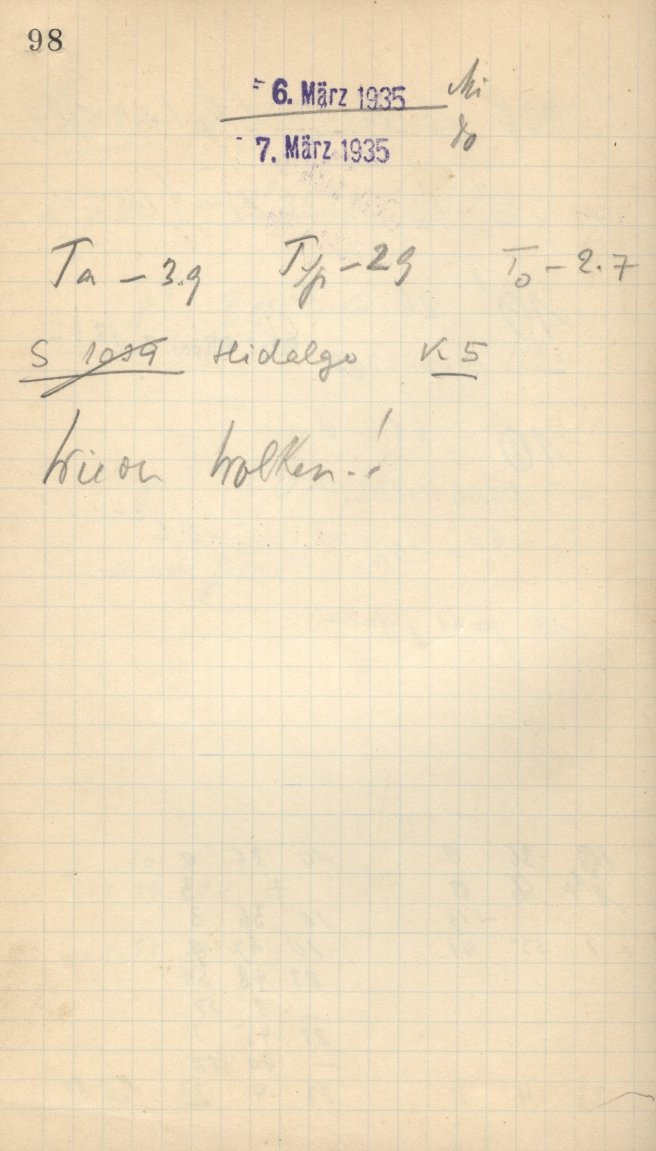 98
6. März 1935 Mi
7. März 1935 Do
Ta - 3.9 Tsp - 2.9 To - 2.7
S 1079 Hidalgo K 5
Wieder Wolken!